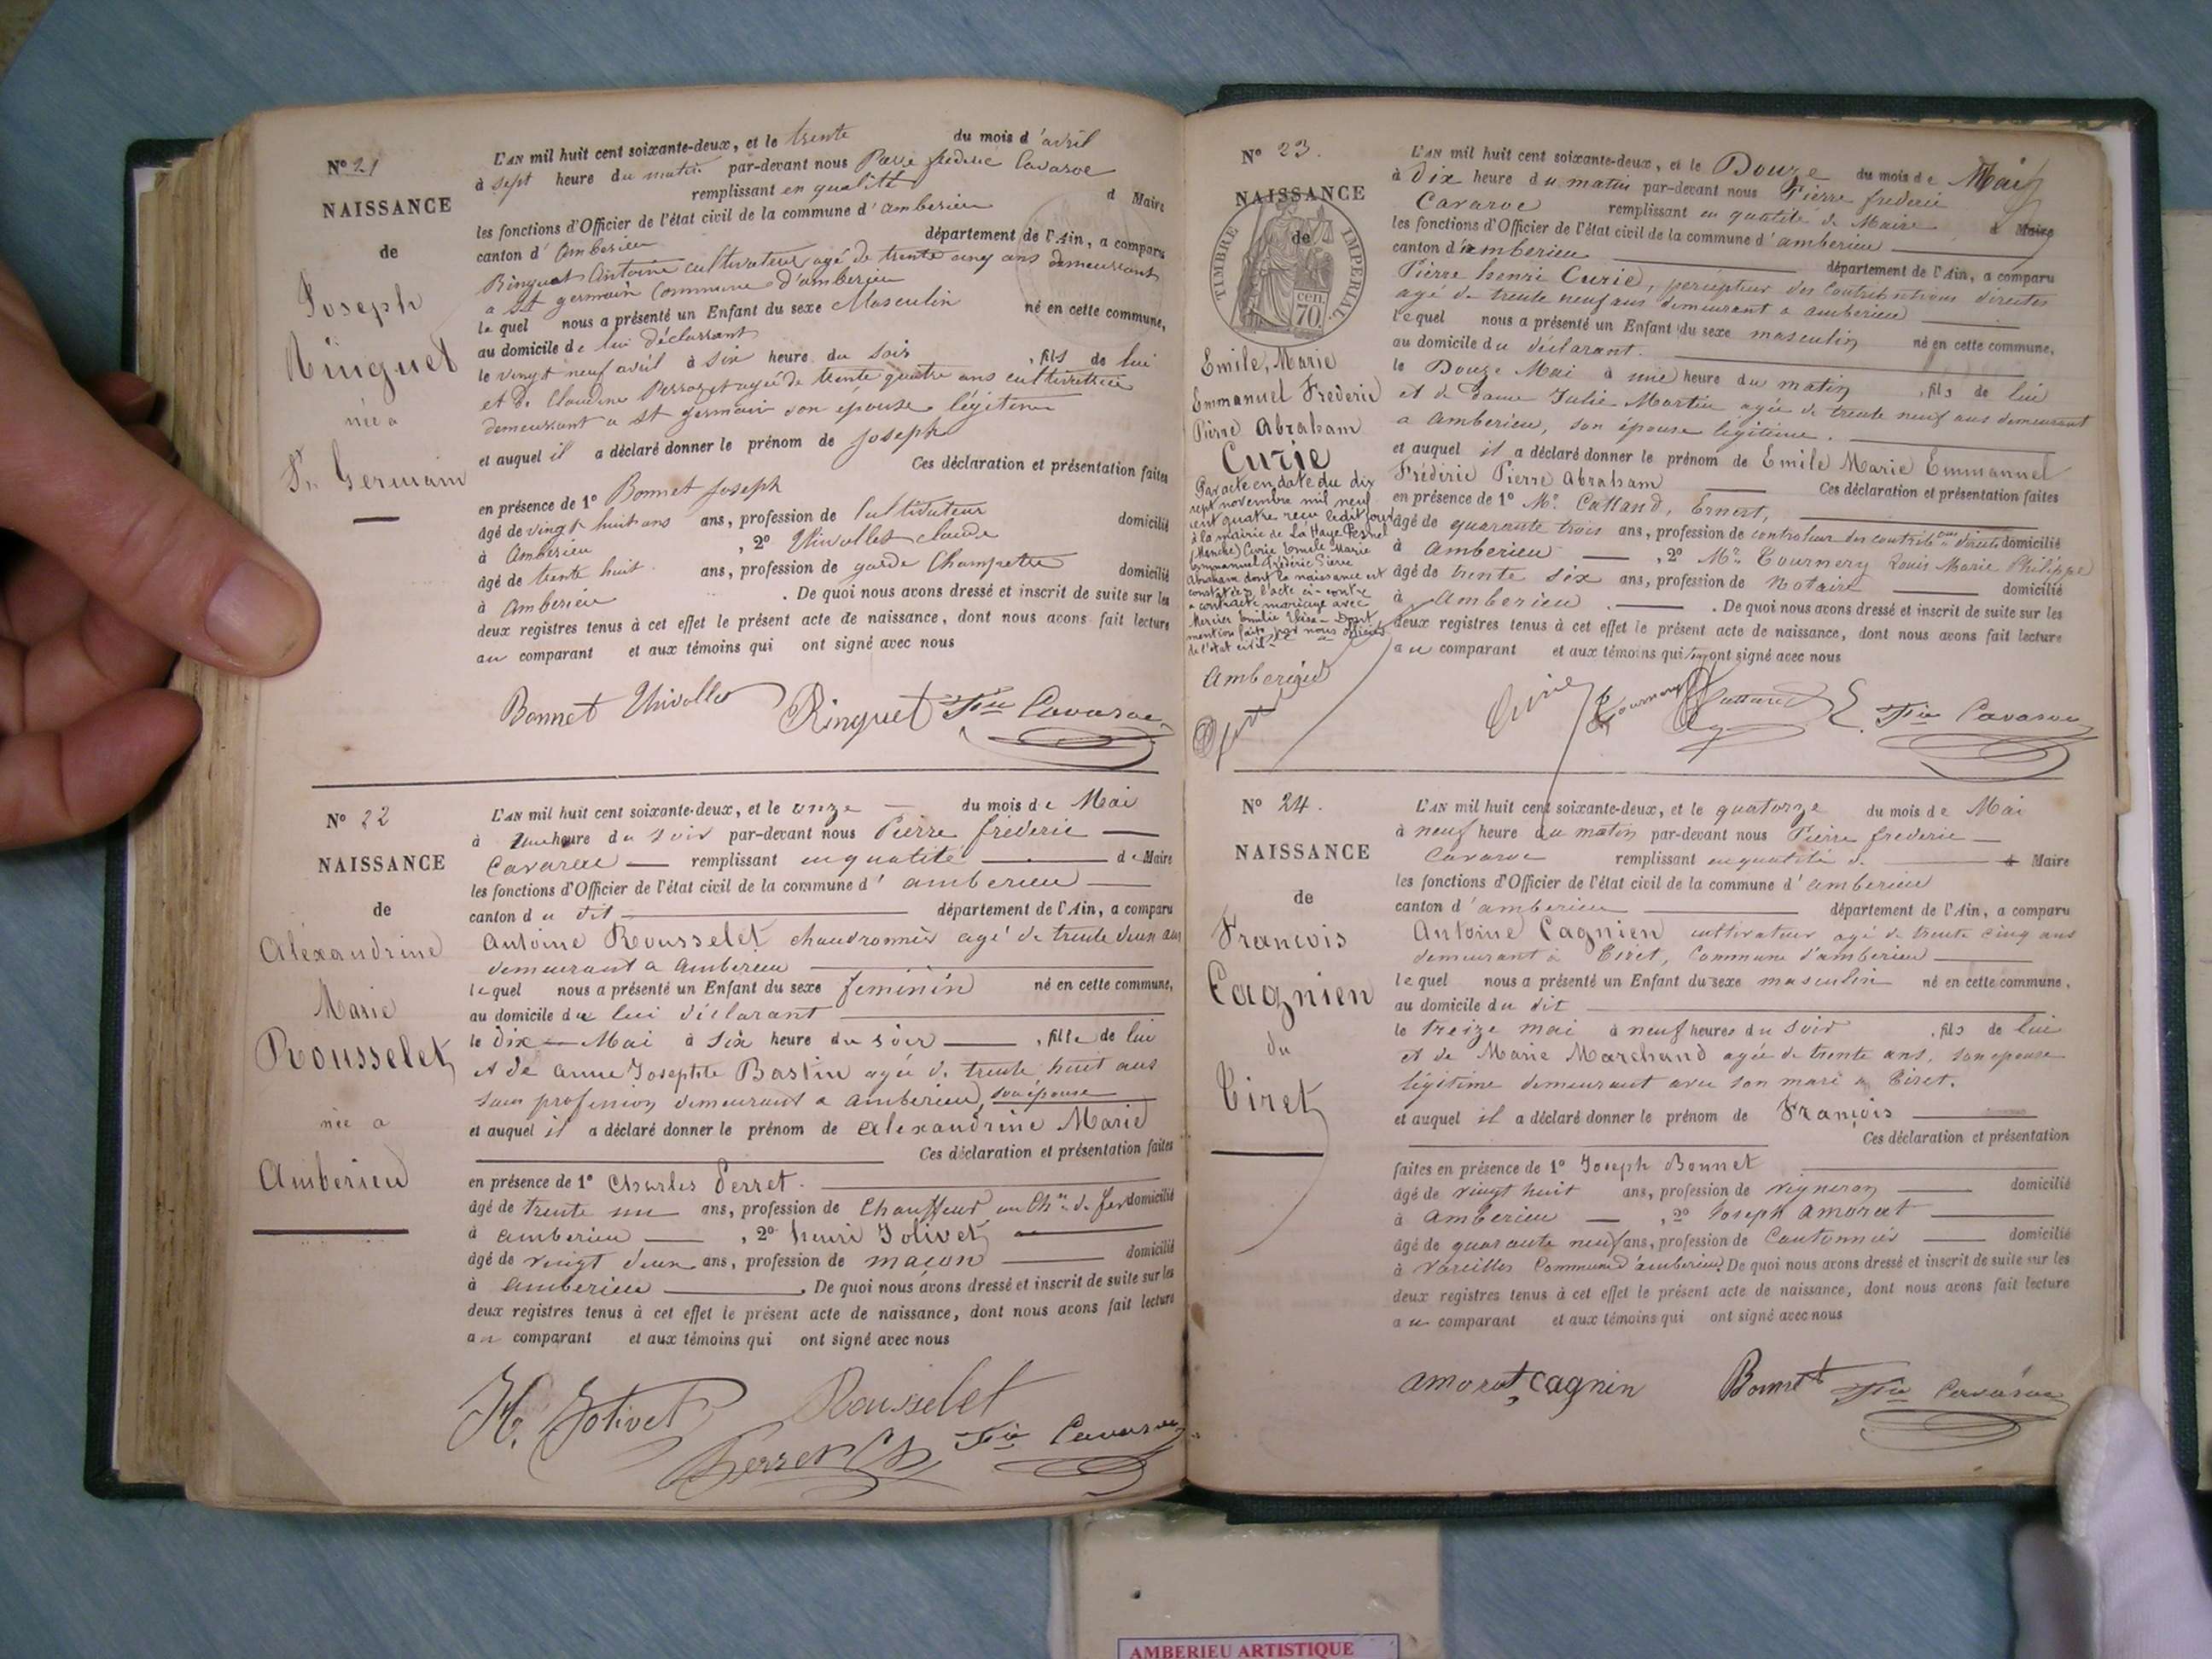 Nº 21
NAISSANCE
de
Joseph
Ringuet
née a
St. Germain
L'AN mil huit cent soixante-deux, et le trente du mois d'avril
à sept heure du matin par-devant nous Pierre frederic Cavaroc
remplissant en qualité d Maire
les fonctions d'Officier de l'état civil de la commune d'amberieu
canton d'Amberieu département de l'Ain, a comparu
Ringuet Antoine cultivateur agé de trente cinq ans demeurant
a St germain Commune d'amberieu
le quel nous a présenté un Enfant du sexe Masculin né en cette commune,
au domicile de lui déclarant
le vingt neuf avril à six heure du soir, fils de lui
et de Claudine Perrozet agée de trente quatre ans cultivatrice
demeurant a St germain son epouse légitime
et auquel il a déclaré donner le prénom de Joseph
Ces déclaration et présentation faites
en présence de 1º Bonnet Joseph
âgé de vingt huit ans ans, profession de Cultivateur domicilié
à Amberieu, 2º claude
âgé de trente huit ans, profession de garde Champetre domicilié
à Amberieu. De quoi nous avons dressé et inscrit de suite sur les
deux registres tenus à cet effet le présent acte de naissance, dont nous avons fait lecture
au comparant et aux témoins qui ont signé avec nous
Bonnet Ringuet Fic Cavaroc
Nº 22
NAISSANCE
de
Alexandrine
Marie
Rousselet
née a
Amberieu
L'AN mil huit cent soixante-deux, et le onze du mois de Mai
à une heure du soir par-devant nous Pierre fréderic
Cavaroc remplissant en qualité de Maire
les fonctions d'Officier de l'état civil de la commune d'amberieu
canton du dit département de l'Ain, a comparu
Antoine Rousselet chaudronnier agé de trente deux ans
demeurant a Amberieu
lequel nous a présenté un Enfant du sexe feminin né en cette commune,
au domicile de lui déclarant
le dix Mai à six heure du soir, fille de lui
et de Anne Josephte Bastin agée de trente huit ans
sans profession demeurant a amberieu, son épouse
et auquel il a déclaré donner le prénom de Alexandrine Marie
Ces déclaration et présentation faites
en présence de 1º Charles Perret.
âgé de trente un ans, profession de Chauffeur au Chin de fer domicilié
à amberieu, 2º henri Jolivet
âgé de vingt deux ans, profession de maçon domicilié
à amberieu. De quoi nous avons dressé et inscrit de suite sur les
deux registres tenus à cet effet le présent acte de naissance, dont nous avons fait lecture
au comparant et aux témoins qui ont signé avec nous
H. Jolivet Rousselet
Perret Ch Fic Cavaroc
Nº 23.
NAISSANCE
de
TIMBRE IMPERIAL
70 cen.
Emile, Marie
Emmanuel Frederic
Pierre Abraham
Curie
Par acte en date du dix
sept novembre mil neuf
cent quatre reçu ledit jour
à la mairie de la Haye Pesnel
(Manche) Curie Emile Marie
Emmanuel Frédéric Pierre
Abraham dont la naissance est
constatée p. l'acte ci-contre
a contracté mariage avec
Mercier Emilie Elisa - Dont
mention faite par nous officier
de l'état civil
Amberieu
L'AN mil huit cent soixante-deux, et le Douze du mois de Mai
à Dix heure du matin par-devant nous Pierre frederic
Cavaroc remplissant en qualité de Maire d Maire
les fonctions d'Officier de l'état civil de la commune d'amberieu
canton d'amberieu département de l'Ain, a comparu
Pierre henri Curie, percepteur des Contributions directes
agé de trente neuf ans demeurant a amberieu
lequel nous a présenté un Enfant du sexe masculin né en cette commune,
au domicile du déclarant.
le Douze Mai à une heure du matin, fils de lui
et de Dame Julie Martin agée de trente neuf ans demeurant
a Amberieu, son épouse légitime.
et auquel il a déclaré donner le prénom de Emile Marie Emmanuel
Frédéric Pierre Abraham Ces déclaration et présentation faites
en présence de 1º Mr. Cattand, Ernest,
âgé de quarante trois ans, profession de controleur des contributions directes domicilié
à Amberieu, 2º Mr. Tournery Louis Marie Philippe
âgé de trente six ans, profession de Notaire domicilié
à Amberieu. De quoi nous avons dressé et inscrit de suite sur les
deux registres tenus à cet effet le présent acte de naissance, dont nous avons fait lecture
au comparant et aux témoins qui ont signé avec nous
Curie Tournery Cattand E. Fic Cavaroc
Nº 24.
NAISSANCE
de
François
Cagnien
du
Tiret
L'AN mil huit cent soixante-deux, et le quatorze du mois de Mai
à neuf heure du matin par-devant nous Pierre frederic
Cavaroc remplissant en qualité de Maire
les fonctions d'Officier de l'état civil de la commune d'amberieu
canton d'amberieu département de l'Ain, a comparu
Antoine Cagnien cultivateur agé de trente cinq ans
demeurant à Tiret, Commune d'amberieu
lequel nous a présenté un Enfant du sexe masculin né en cette commune,
au domicile du dit
le treize mai à neuf heures du soir, fils de lui
et de Marie Marchand agée de trente ans, son epouse
légitime demeurant avec son mari a Tiret.
et auquel il a déclaré donner le prénom de François
Ces déclaration et présentation
faites en présence de 1º Joseph Bonnet
âgé de vingt huit ans, profession de vigneron domicilié
à Amberieu, 2º Joseph Amorat
âgé de quarante neuf ans, profession de Cantonnier domicilié
à Vareilles Commune d'amberieu. De quoi nous avons dressé et inscrit de suite sur les
deux registres tenus à cet effet le présent acte de naissance, dont nous avons fait lecture
au comparant et aux témoins qui ont signé avec nous
amorat, Cagnin Bonnet Fic Cavaroc
AMBERIEU ARTISTIQUE